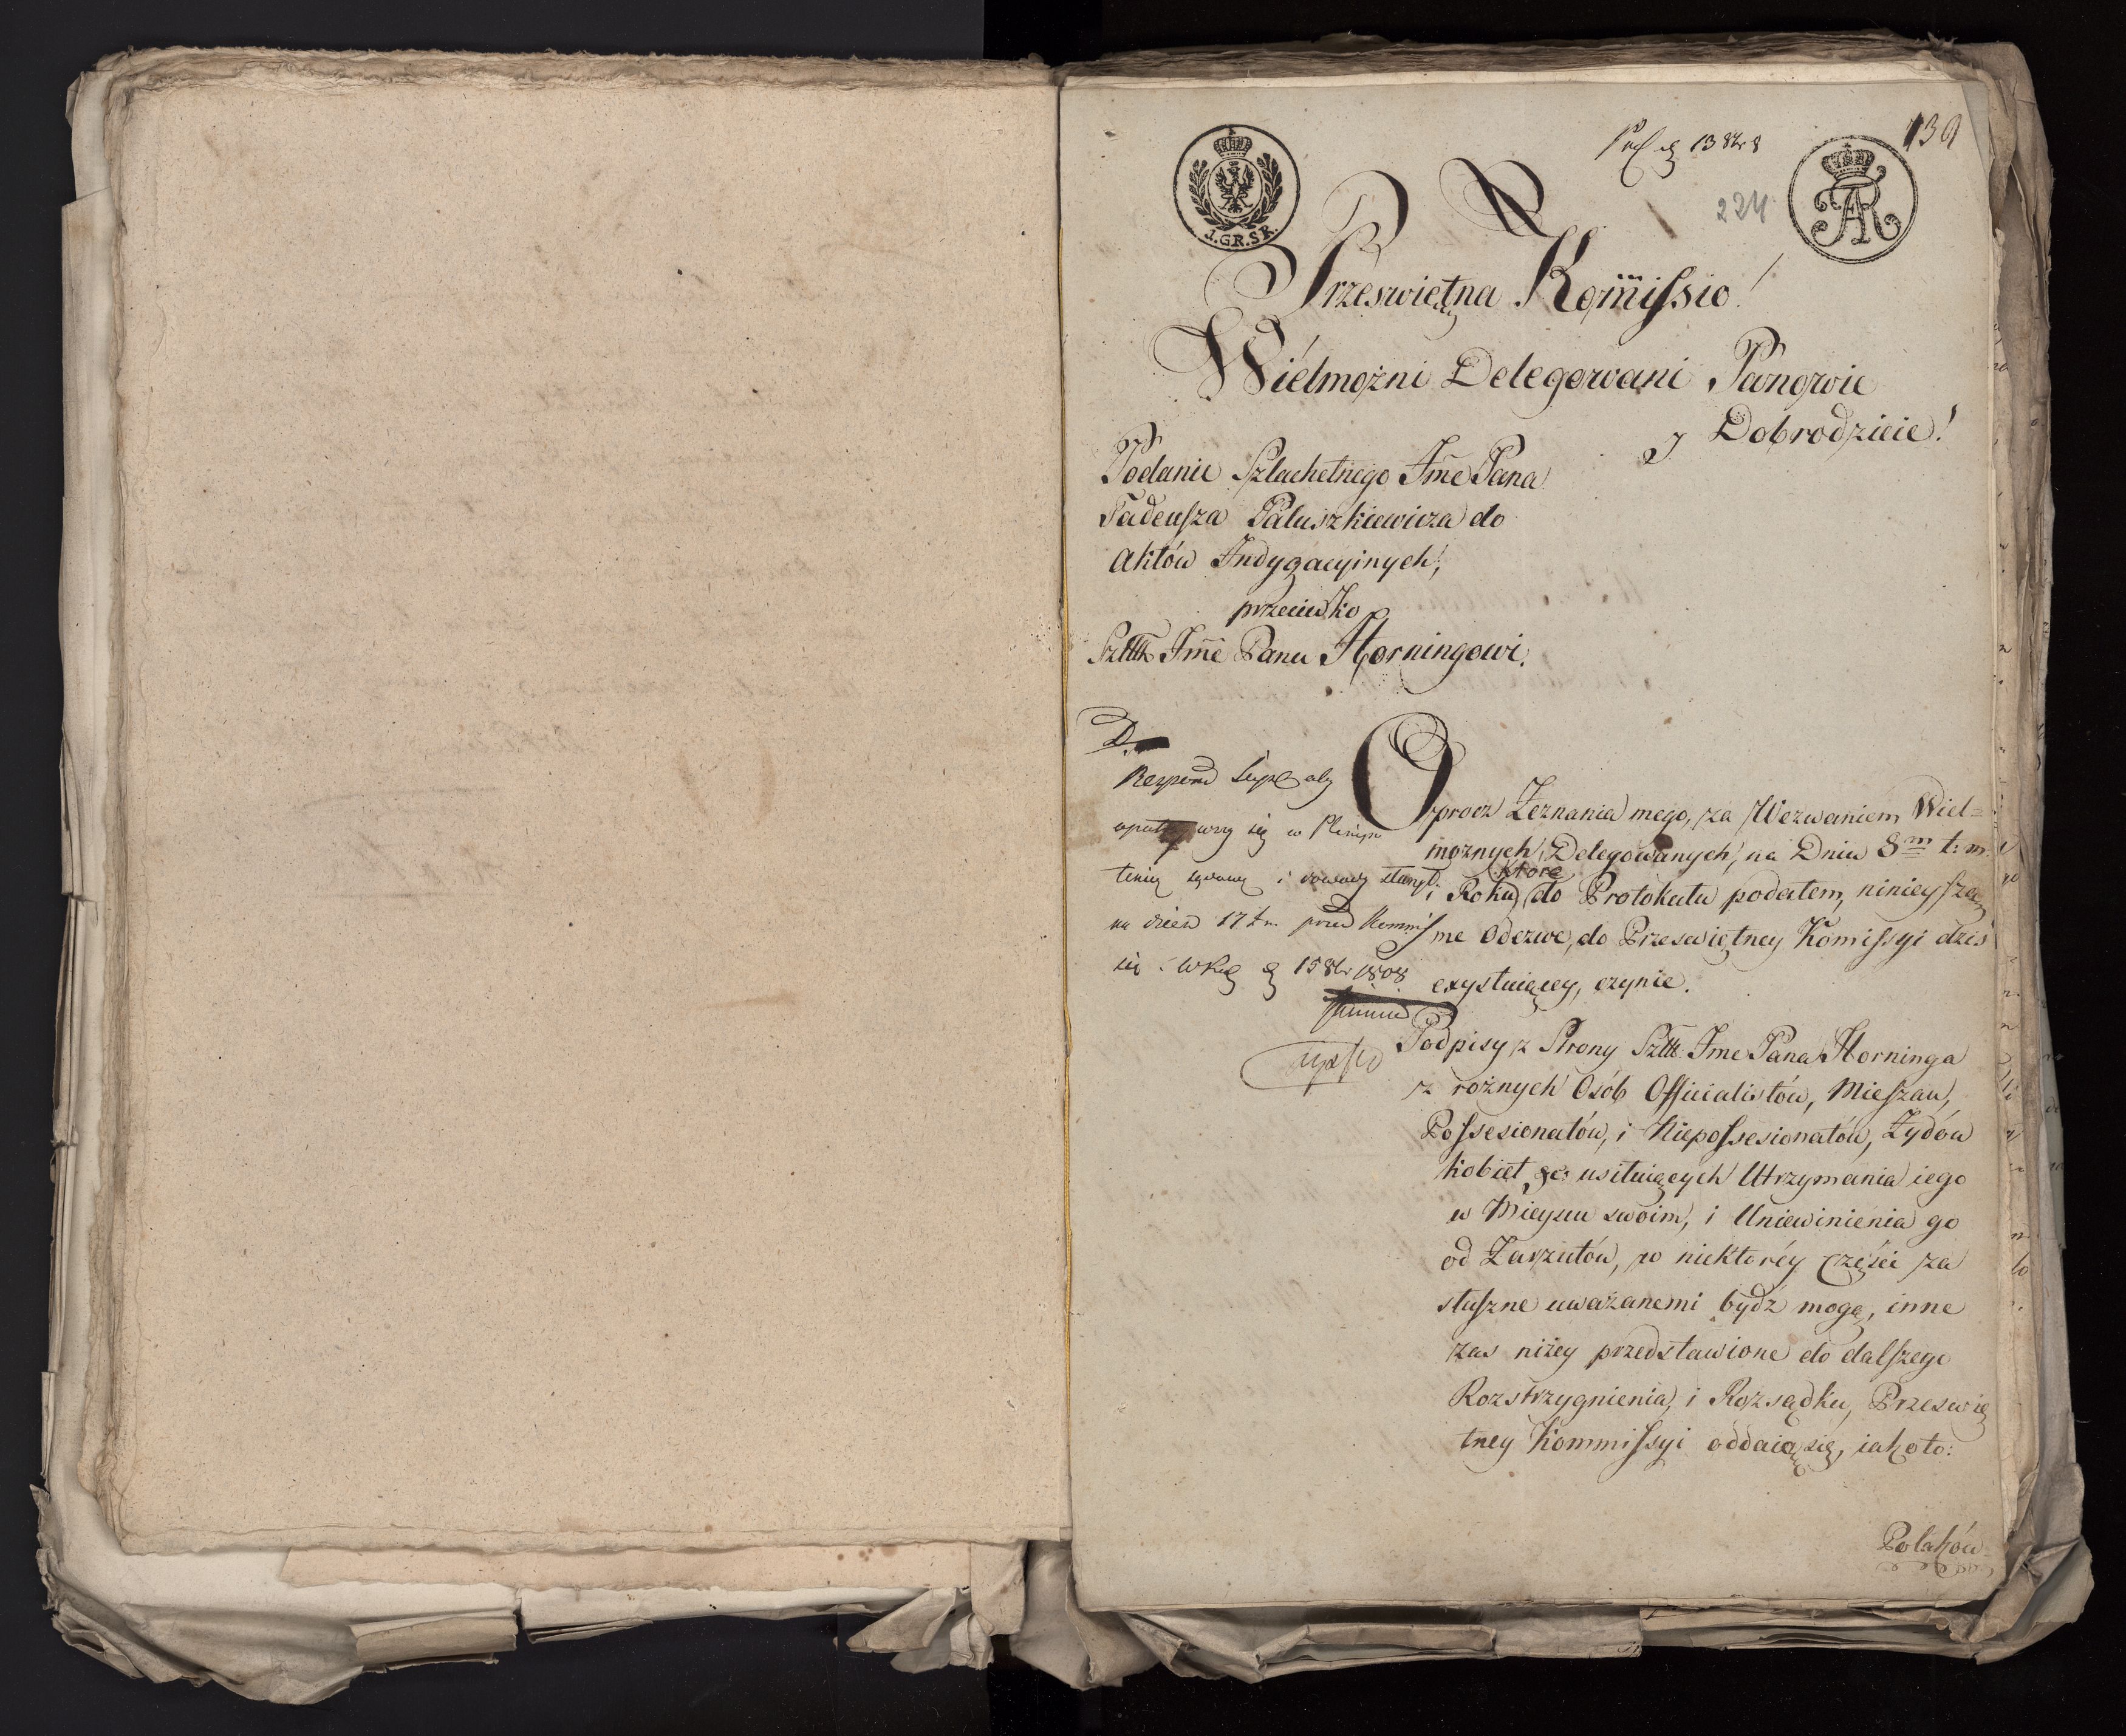 139
13 8br 8
224
1.GR.SR.
Przeswietna Kommissio!
Wielmożni Delegowani Panowie
J Dobrodzieie!
Podanie Szlachetnego Jme Pana
Tadeusza Paluszkiewicza do
Aktów Indygacyinych,
przeciwko
Szltt Jme Panu Horningowi.
D.
się w
na dzien 17 t. m. przed Kommis
15 8br 1808
Oprocz Zeznania mego, za Wezwaniem Wiel=
możnych Delegowanych, na Dniu 8m t: m
które
i Roku, do Protokutu podatem, ninieysze
me Odezwe, do Przeswiętney Komissyi dzis
exystuiącey, czynie.
Podpisy z Strony Szltt. Jme Pana Horninga
z rożnych Osób Officialistów, Mieszan,
Possesionatów, i Niepossesionatów, Żydów
kobiet, usituiących Utrzymania iego
w Mieyscu swoim, i Uniewinienia go
od Zarzutów, w niektoréy części za
stuszne uważanemi bydź mogą, inne
zas niżey przedstawione do dalszego
Rozstrzygnienia, i Rozsądku, Przeswię
tney Kommissyi oddaią się, iako to:
Polaków